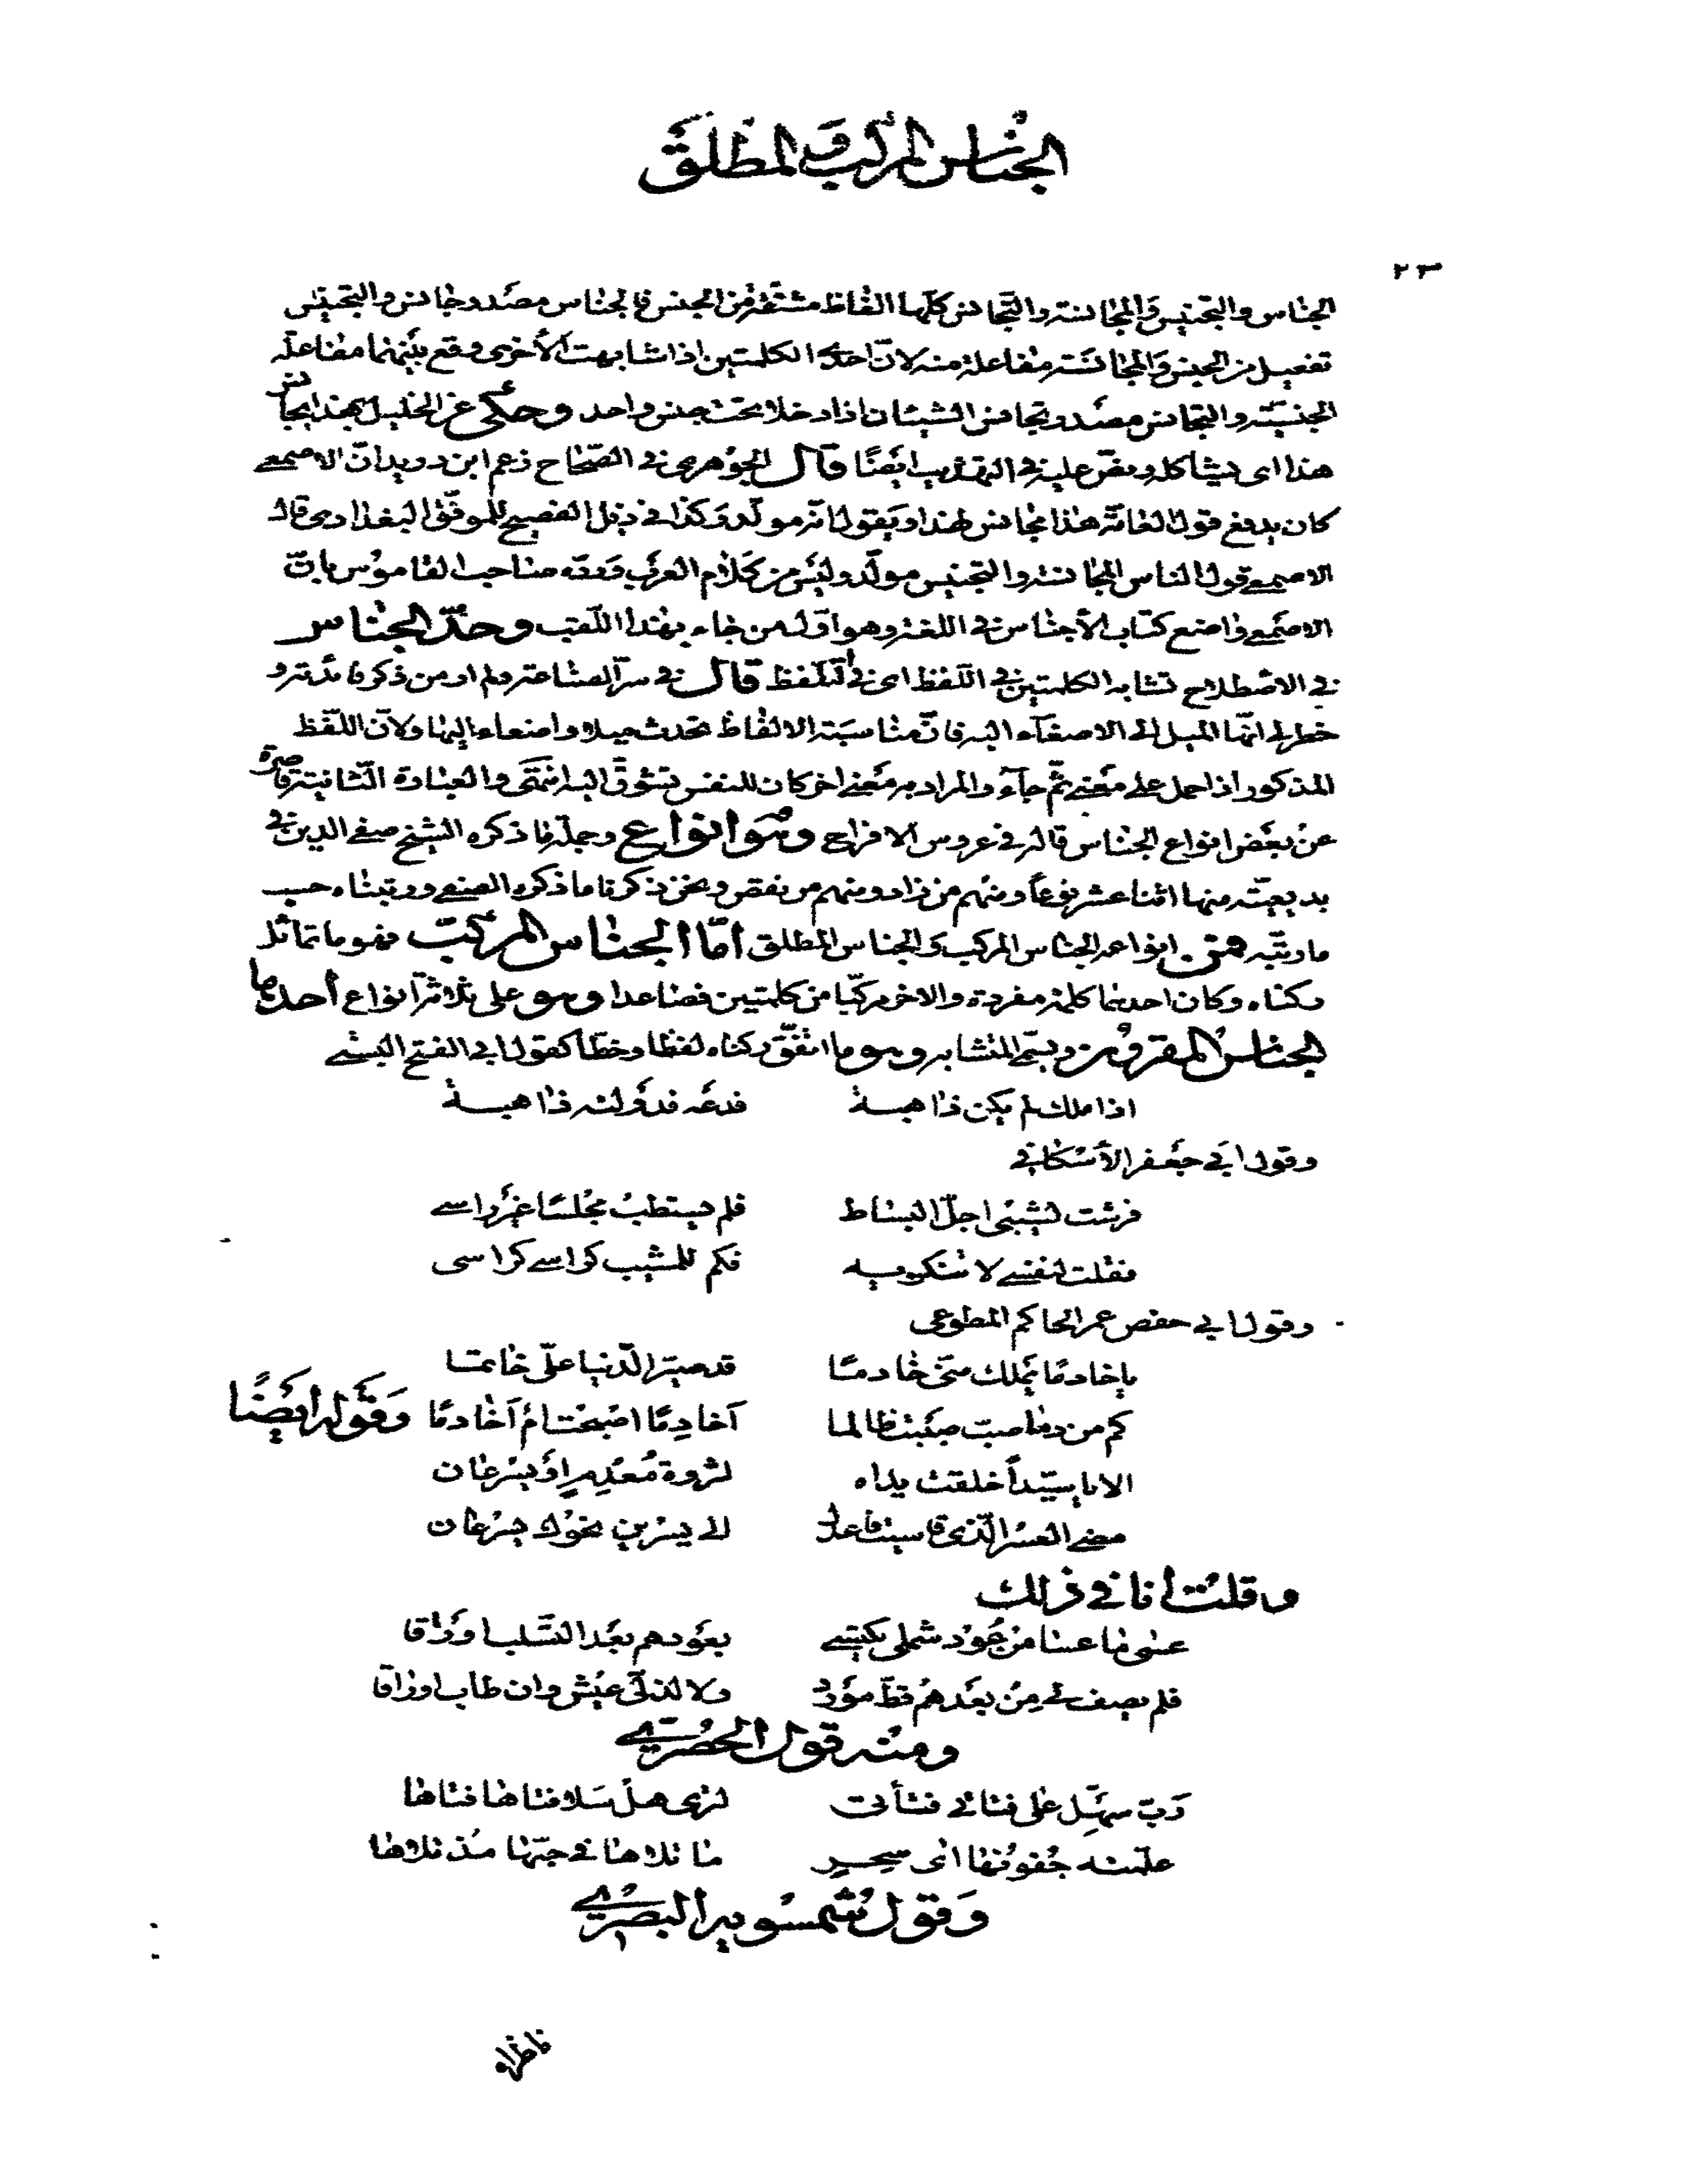 الجناس المركب والمطلق
٢٣
الجناس والتجنيس والمجانسة والتجانس كلها الفاظ مشتقة من الجنس فالجناس مصدر جانس والتجنيس
تفعيل من الجنس والمجانسة مفاعلة منه لان احدى الكلمتين اذا شابهت الأخرى وقع بينهما مفاعلة
الجنسية والتجانس مصدر تجانس الشيئان اذا دخلا تحت جنس واحد وحكى عن الخليل هذا يجانس
هذا اى يشاكله ونص عليه في التهذيب ايضًا قال الجوهرى في الصحاح زعم ابن دريد ان الاصمعي
كان يدفع قول العامة هذا مجانس لهذا ويقول انه مولد وكذا في ذيل الفصيح للموفق البغدادى قال
الاصمعي قول الناس المجانسة والتجنيس مولد وليس من كلام العرب ورده صاحب القاموس بان
الاصمعي واضع كتاب الأجناس في اللغة وهو اول من جاء بهذا اللقب وحدّ الجناس
في الاصطلاح تشابه الكلمتين في اللفظ اى في التلفظ قال في سر الصناعة ولم ار من ذكر فائدته و
خطر لي انها الميل الى الاصغآء اليه فان مناسبة الالفاظ تحدث ميلا واصغاء اليها ولان اللفظ
المذكور اذا حمل على معنى ثم جآء والمراد به معنى اخر كان للنفس تشوق اليه انتهى والعبارة الثانية قاصرة
عن بعض انواع الجناس قاله في عروس الافراح وهو انواع وجملة ما ذكره الشيخ صفي الدين في
بديعيته منها اثنا عشر نوعاً ومنهم من زاد ومنهم من نقص ونحن ذكرنا ما ذكره الصفي ورتبناه حسب
ما رتبه فمن انواعه الجناس المركب والجناس المطلق أمّا الجناس المركب فهو ما تماثل
ركناه وكان احدهما كلمة مفردة والاخر مركبا من كلمتين فصاعدا وهو على ثلاثة انواع أحدها
الجناس المقرون ويسمى المتشابه وهو ما اتفق ركناه لفظا وخطا كقول ابي الفتح البستي
اذا ملك لم يكن ذا هبة فدعه فدولته ذاهبة
وقول ابي جعفر الأسكافي
فرشت لشيبى اجلّ البساط فلم يستطب مجلسًا غير راسي
فقلت لنفسي لا تنكريه فكم للمشيب كراسي كراسى
وقول ابي حفص عمر الحاكم المطوعى
قد صير الدنيا على خاتما
كم من دما صبت آخا دِمًا اصبحت ام آخادمًا وَقَوله ايضًا
الا يا سيّداً خلقت يداه لثروة مُعْدِمٍ او يسر عان
مضى العسر الذى الى يسر بن نحوك يسرعان
وقلت انا في ذلك
عسى ما عسا من عُود شملي يعودهم بعد التسلب اوراقا
فلم يصف لي من بعدهم قط مورد ولا لذ لي عيش وان طاب اوراقا
ومنه قول الحصري
ربّ سهل على فتاتي لترى هل سلا فتاها فتاها
علمته جفونها اى سحر ما تلاها في حبها مذ تلاها
وَقول شمسويه البصري
ناظراه